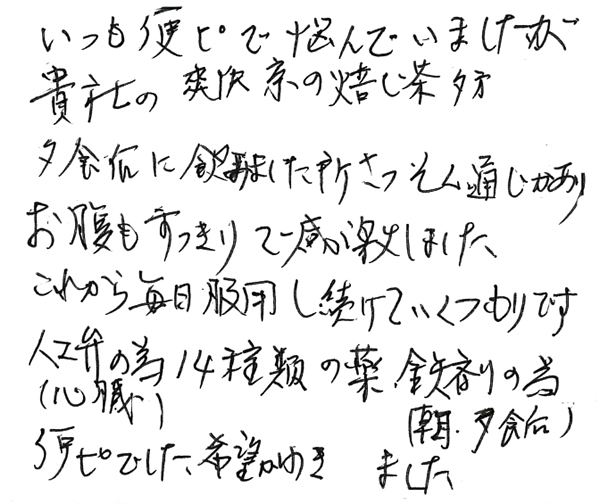 いつも便ピで悩んでいましたが
貴社の爽快京の焙じ茶夕方
夕食后に飲みました所さっそく通じがあり
お腹もすっきりで感が楽しました、
これから毎日服用し続けていくつもりです
人工弁の為14種類の薬、鉄剤の為
(心臓) (朝、夕食后)
便ピでした、希望がわきました